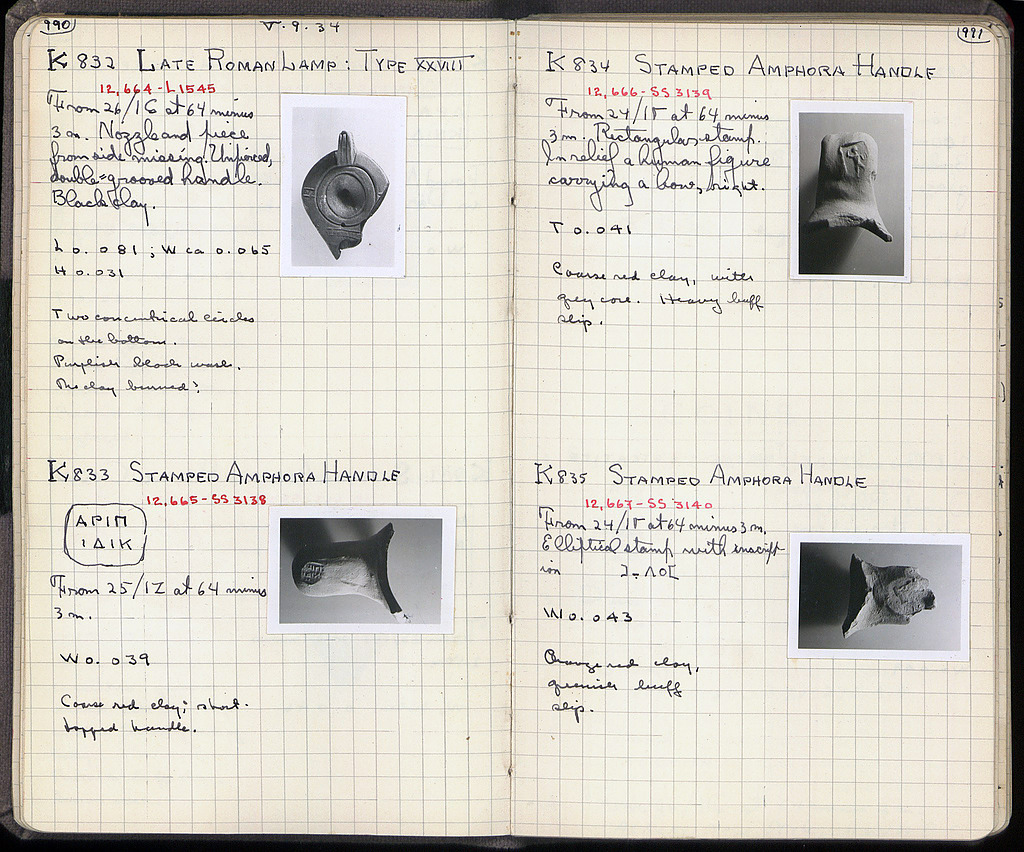 990
V.9.34
K 832 LATE ROMAN LAMP: TYPE XXVIII
12,664-L1545
From 26/ΙϚ at 64 minus
3 m. Nozzle and piece
from side missing. Unpierced,
double-grooved handle.
Black clay.
L 0.081; W ca 0.065
H 0.031
Two concentrical circles
on the bottom.
Purplish black wash.
The clay burned?
K 833 STAMPED AMPHORA HANDLE
12,665-SS 3138
ΑΡΙΠ
ΙΔΙΚ
From 25/ΙΖ at 64 minus
3 m.
W 0.039
Coarse red clay; short
topped handle.
991
K 834 STAMPED AMPHORA HANDLE
12,666-SS 3139
From 24/ΙΓ at 64 minus
3 m. Rectangular stamp.
In relief a human figure
carrying a bow, right.
T 0.041
Coarse red clay, with
grey core. Heavy buff
slip.
K 835 STAMPED AMPHORA HANDLE
12,667-SS 3140
From 24/ΙΓ at 64 minus 3 m.
Elliptical stamp with inscript
ion
W 0.043
Orange red clay,
greenish buff
slip.